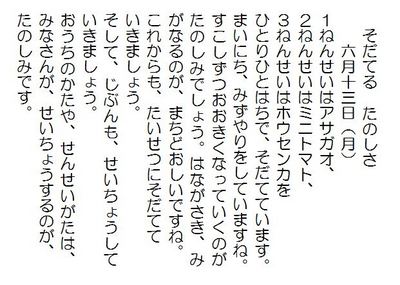 そだてる　たのしさ
六月十三日（月）
1ねんせいはアサガオ、
2ねんせいはミニトマト、
3ねんせいはホウセンカを
ひとりひとはちで、そだてています。
まいにち、みずやりをしていますね。
すこしずつおおきくなっていくのが
たのしみでしょう。はながさき、み
がなるのが、まちどおしいですね。
これからも、たいせつにそだてて
いきましょう。
そして、じぶんも、せいちょうして
いきましょう。
おうちのかたや、せんせいがたは、
みなさんが、せいちょうするのが、
たのしみです。